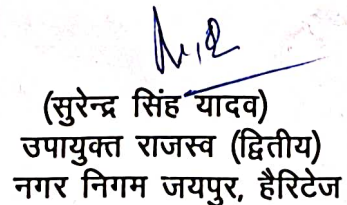 (सुरेन्द्र सिंह यादव)
उपायुक्त राजस्व (द्वितीय)
नगर निगम जयपुर, हैरिटेज